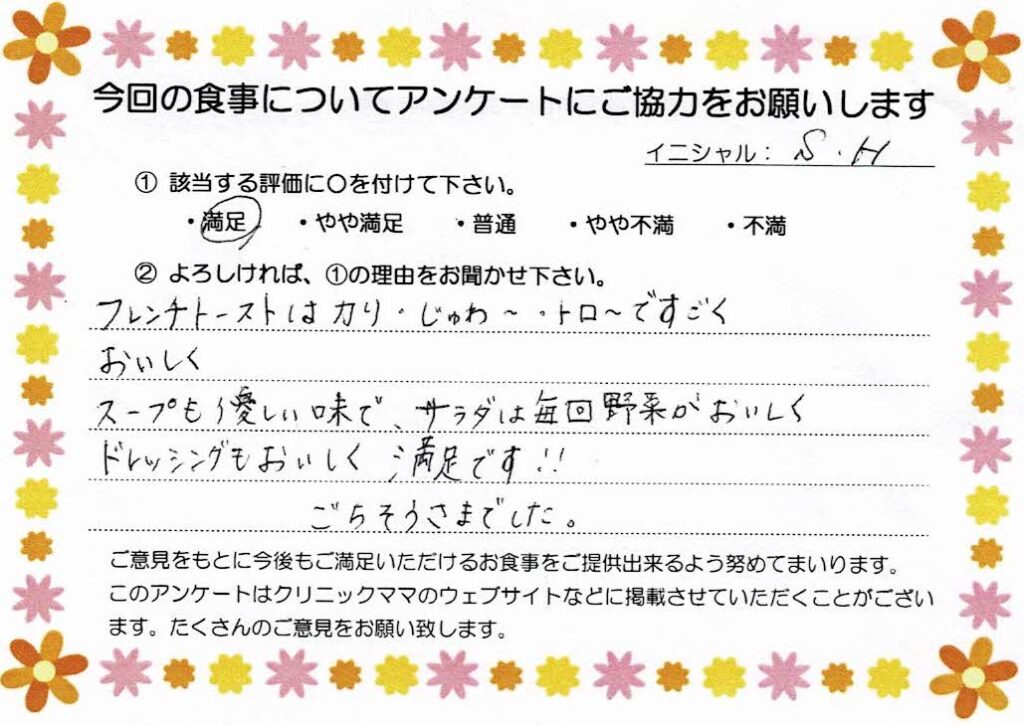 今回の食事についてアンケートにご協力をお願いします
イニシャル： S.H
① 該当する評価に〇を付けて下さい。
・満足 ・やや満足 ・普通 ・やや不満 ・不満
② よろしければ、①の理由をお聞かせ下さい。
フレンチトーストはカリ・じゅわ～・トロ～ですごく
おいしく
スープも優しい味で、サラダは毎回野菜がおいしく
ドレッシングもおいしく満足です!!
ごちそうさまでした。
ご意見をもとに今後もご満足いただけるお食事をご提供出来るよう努めてまいります。
このアンケートはクリニックママのウェブサイトなどに掲載させていただくことがござい
ます。たくさんのご意見をお願い致します。